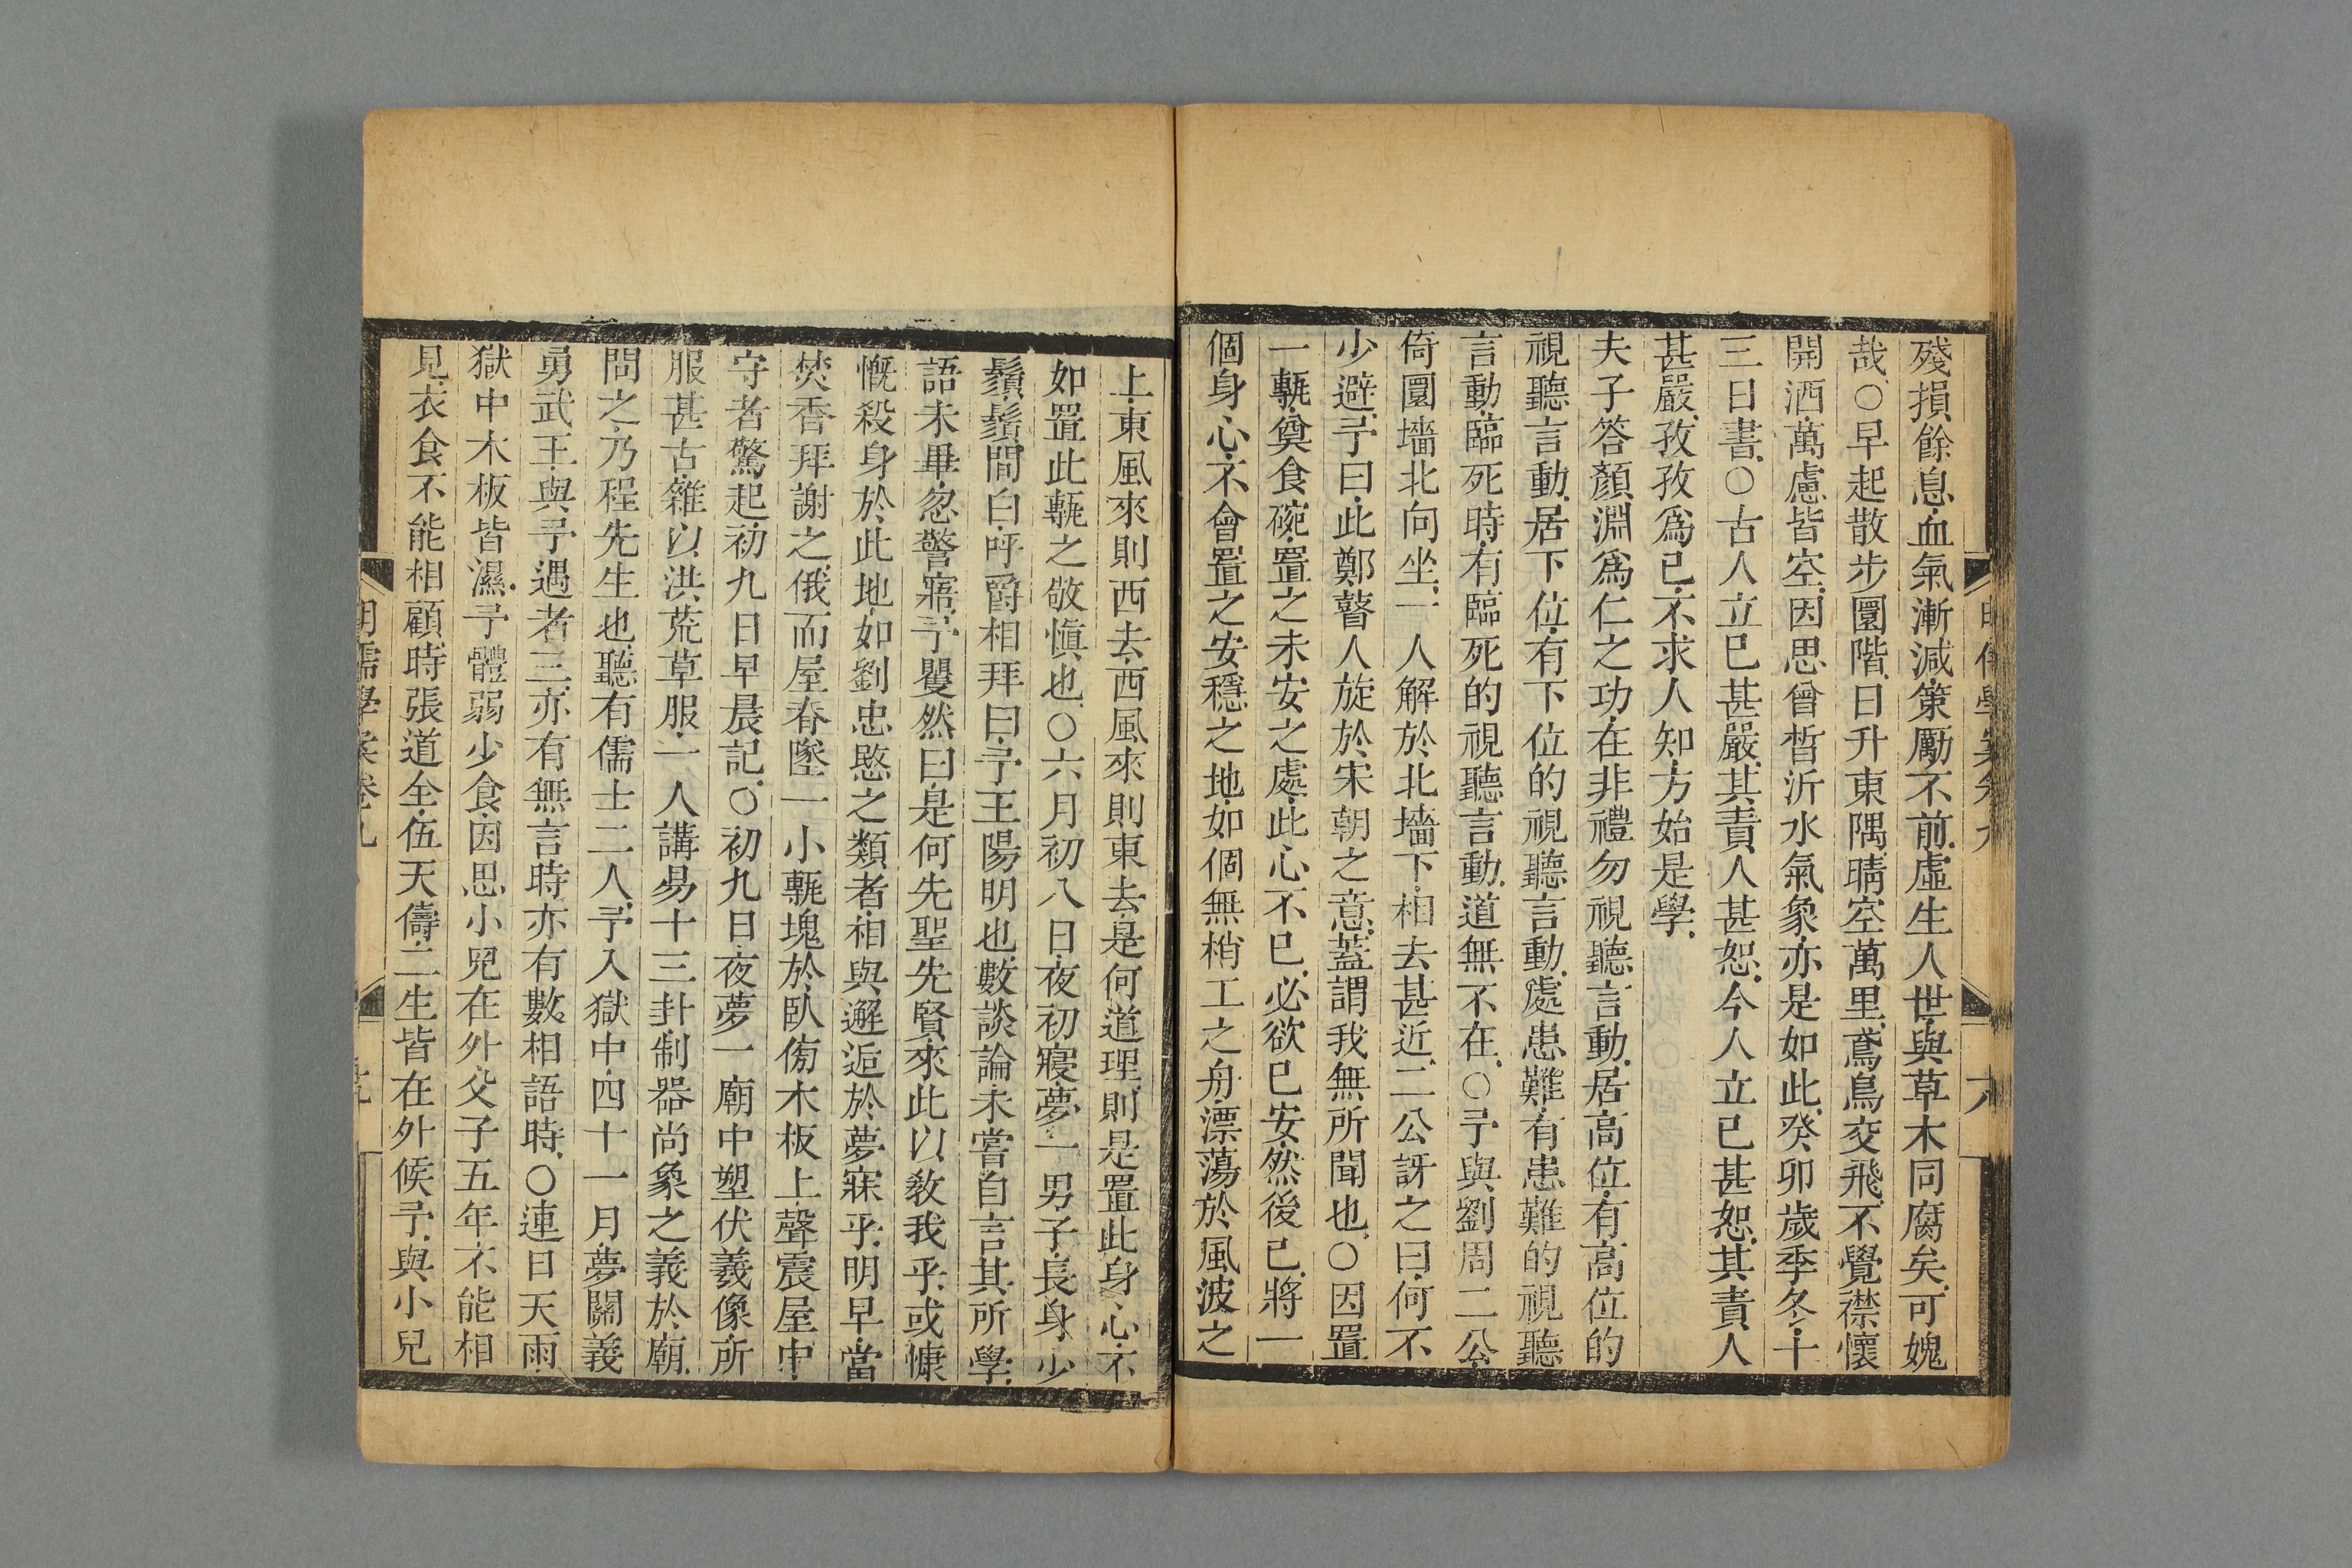 殘損餘息血氣漸減策勵不前虛生人世與草木同腐矣可媿
哉○早起散步圜階日升東隅晴空萬里鳶鳥交飛不覺襟懷
開洒萬慮皆空因思曾晳沂水氣象亦是如此癸卯歲季冬十
三日書○古人立已甚嚴其責人甚恕今人立已甚恕其責人
甚嚴孜孜爲已不求人知方始是學
夫子答顏淵爲仁之功在非禮勿視聽言動居高位有高位的
視聽言動居下位有下位的視聽言動處患難有患難的視聽
言動臨死時有臨死的視聽言動道無不在○予與劉周二公
倚圜墻北向坐一人解於北墻下相去甚近二公訝之曰何不
少避予曰此鄭瞽人旋於宋朝之意蓋謂我無所聞也○因置
一甎奠食碗置之未安之處此心不已必欲已安然後已將一
個身心不會置之安穩之地如個無梢工之舟漂蕩於風波之
上東風來則西去西風來則東去是何道理則是置此身心不
如置此甎之敬愼也○六月初八日夜初寢夢一男子長身少
鬚鬚間白呼爵相拜曰予王陽明也數談論未嘗自言其所學
語未畢忽警寤予矍然曰是何先聖先賢來此以敎我乎或慷
慨殺身於此地如劉忠愍之類者相與邂逅於夢寐乎明早當
焚香拜謝之俄而屋脊墜一小甎塊於臥傍木板上聲震屋中
守者驚起初九日早晨記○初九日夜夢一廟中塑伏羲像所
服甚古雜以洪荒草服一人講易十三卦制器尚象之義於廟
問之乃程先生也聽有儒士二人予入獄中四十一月夢關義
勇武王與予遇者三亦有無言時亦有數相語時○連日天雨
獄中木板皆濕予體弱少食因思小兒在外父子五年不能相
見衣食不能相顧時張道全伍天儔二生皆在外候予與小兒